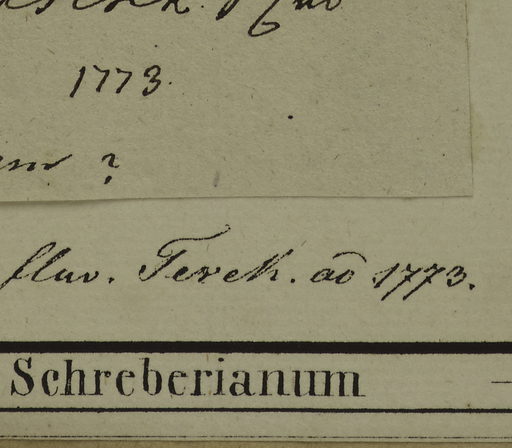 1773.
?
fluv. Terek. aō 1773.
Schreberianum